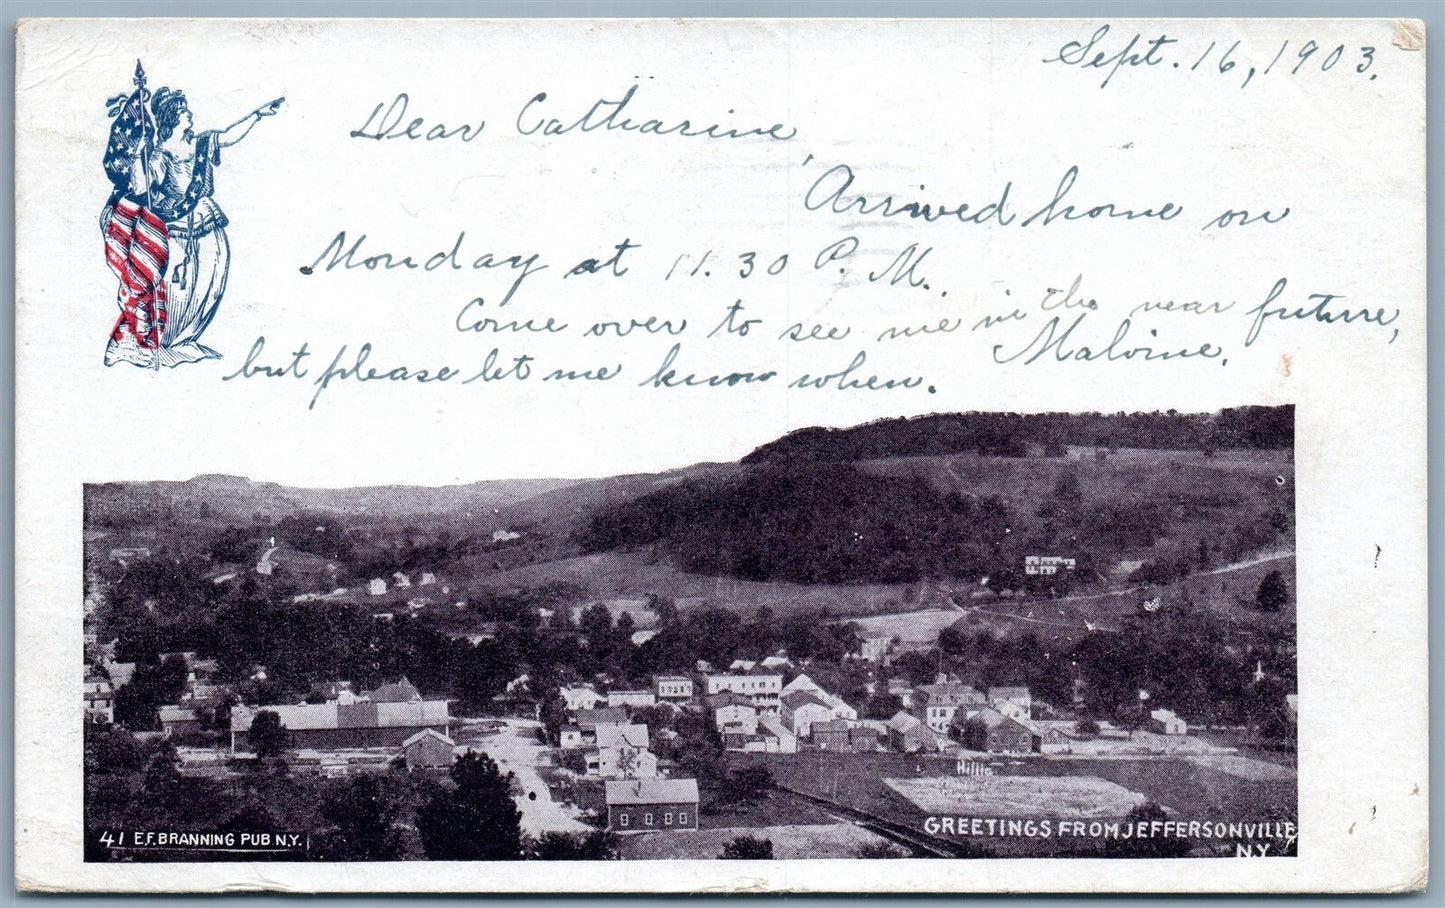 Sept. 16, 1903.
Dear Catharine,
Arrived home on
Monday at 11.30 P. M.
Come over to see me in the near future,
but please let me know when.
Malvine.
41 E.F. BRANNING PUB N.Y.
GREETINGS FROM JEFFERSONVILLE
N.Y.